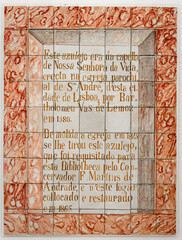 Este azulejo era da capella
de Nossa Senhora da Vida,
erecta na egreja parochi-
al de Sto André, d'esta ci-
dade de Lisboa, por Bar-
tholomeu Vas de Lemos
em 1580.
Demolida a egreja em 1845
se lhe tirou este azulejo,
que foi requisitado para
esta Bibliotheca pelo Con-
servador F. Martins de
Andrade, e n'este logar
collocado e restaurado
em 1865.